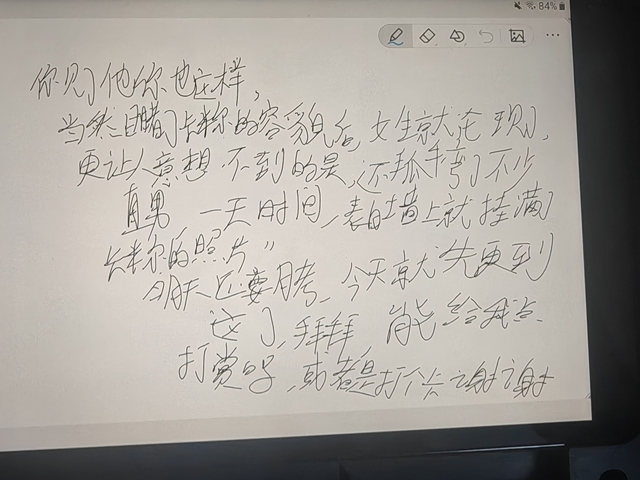 84%
你见了他你也这样,
当然目睹了卡米尔的容貌后,女生就沦陷了,
更让人意想不到的是,还掰弯了不少
直男 一天时间,表白墙上就挂满了
卡米尔的照片”
明天还要月考,今天就先更到
这了,拜拜,能给我点
打赏吗,或者是打个卡谢谢